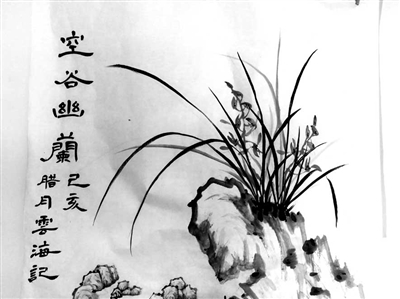 空谷幽蘭
己亥
腊月雲海記